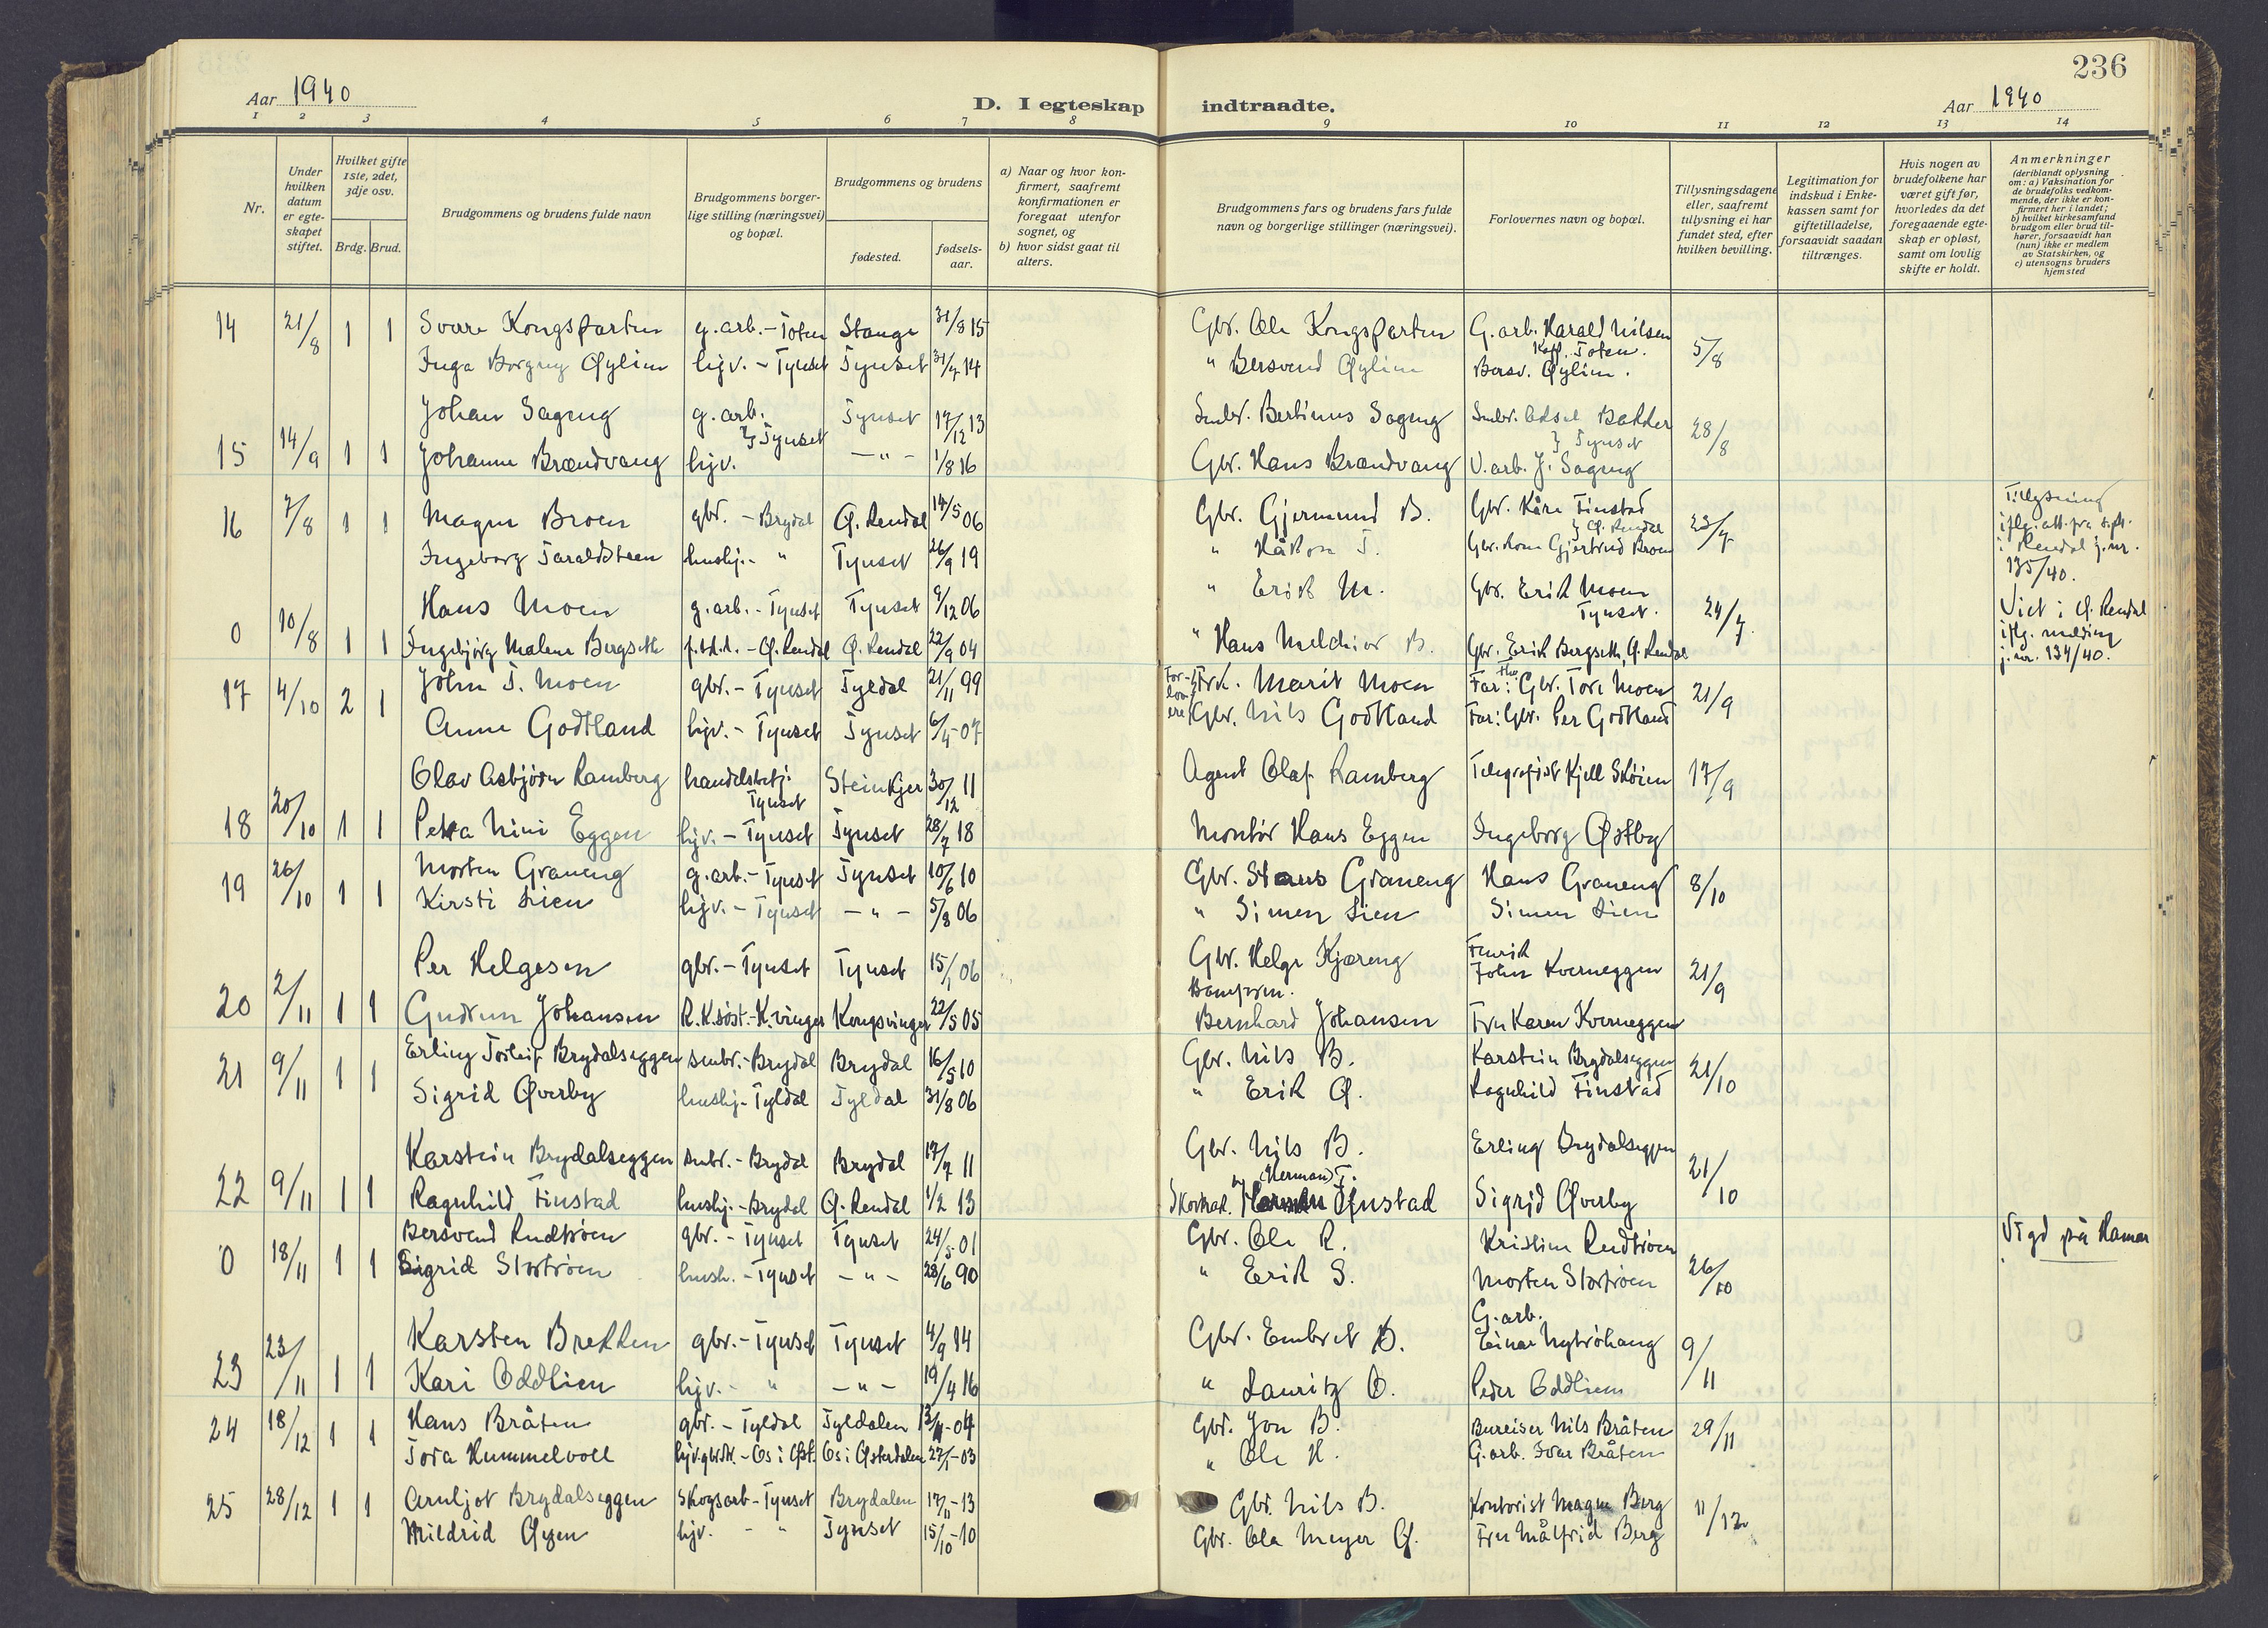 236
Aar 1940
D. I egteskap indtraadte.
Aar 1940
1 2 3 4 5 6 7 8 9 10 11 12 13 14
Nr.
Under hvilken datum er egteskapet stiftet.
Hvilket gifte 1ste, 2det, 3dje osv.
Brdg. Brud.
Brudgommens og brudens fulde navn
Brudgommens borgerlige stilling (næringsvei) og bopæl.
Brudgommens og brudens
fødested.
fødselsaar.
a) Naar og hvor konfirmert, saafremt konfirmationen er foregaat utenfor sognet, og
b) hvor sidst gaat til alters.
Brudgommens fars og brudens fars fulde navn og borgerlige stillinger (næringsvei).
Forlovernes navn og bopæl.
Tillysningsdagene eller, saafremt tillysning ei har fundet sted, efter hvilken bevilling.
Legitimation for indskud i Enkekassen samt for giftetilladelse, forsaavidt saadan tiltrænges.
Hvis nogen av brudefolkene har været gift før, hvorledes da det foregaaende egteskap er opløst, samt om lovlig skifte er holdt.
Anmerkninger (deriblandt oplysning om: a) Vaksination for de brudefolks vedkommende, der ikke er konfirmert her i landet; b) hvilket kirkesamfund brudgom eller brud tilhører, forsaavidt han (hun) ikke er medlem av Statskirken, og c) utensogns bruders hjemsted
14 21/8 1 1 Sverre Kongsparten g.arb. - Toten Stange 31/8 15 Gbr. Ole Kongsparten G.arb. Harald Nilsen Kapp, Toten. 5/8
Inga Borgny Øylien hjv. - Tynset Tynset 31/7 14 " Bersvend Øylien Bersv. Øylien.
Johan Sageng g.arb. Tynset 17/12 13 Smbr. Bertinus Sageng Smbr. Aksel Bakken 28/8
15 14/9 1 1 Johanne Brændvang hjv. } Tynset - " - 1/8 16 Gbr. Hans Brændvang V.arb. J. Sageng } Tynset
16 7/8 1 1 Magne Broen gbr. - Brydal Ø. Rendal 14/5 06 Gbr. Gjermund B. Gbr. Kåre Finstad 23/7 Tillysning
Ingeborg Taraldsteen hushj. - " Tynset 26/9 19 " Håkon T. Gbr. kone Gjertrud Broen } Ø. Rendal iflg. att. fra sspr. i Rendal j.nr. 135/40.
Hans Moen g.arb. - Tynset Tynset 9/12 06 " Erik M. Gbr. Erik Moen Tynset. 24/7. Viet i Ø. Rendal
0 10/8 1 1 Ingebjørg Malene Bergseth - Ø. Rendal Ø. Rendal 22/9 04 " Hans Melchior B. Gbr. Erik Bergseth, Ø. Rendal iflg. melding j.nr. 134/40.
17 4/10 2 1 John T. Moen gbr. - Tynset Tyldal 21/11 99 Forlovere { Frk. Marit Moen Far: Gbr. Tore Moen 21/9
Anne Godtland hjv. - Tynset Tynset 6/4-07 Gbr. Nils Godtland Far: Gbr. Per Godtland
Olav Asbjørn Ramberg handelsbetj. Tynset Steinkjer 30/12 11 Agent Olaf Ramberg Telegrafist Kjell Skoien 17/9
18 20/10 1 1 Petra Nini Eggen hjv. - Tynset Tynset 28/7 18 Montør Hans Eggen Ingeborg Østby
19 26/10 1 1 Morten Graneng g.arb. - Tynset Tynset 10/6 10 Gbr. Hans Graneng Hans Graneng 8/10
Kirsti Lien hjv. - Tynset - " - 5/8 06 " Simen Lien Simen Lien
Per Helgesen gbr. - Tynset Tynset 15/1 06 Gbr. Helge Kjæreng Fenrik John Kverneggen 21/9
20 2/11 1 1 Gudrun Johansen R.K.søst. - K.vinger Kongsvinger 22/5 05 Bernhard Johansen Fru Karen Kverneggen
21 9/11 1 1 Erling Torleif Brydalseggen smbr. - Brydal Brydal 16/5 10 Gbr. Nils B. Karstein Brydalseggen 21/10
Sigrid Øverby hushj. - Tyldal Tyldal 31/8 06 " Erik Ø. Ragnhild Finstad
Karstein Brydalseggen smbr. - Brydal Brydal 17/7 11 Gbr. Nils B. Erling Brydalseggen 21/10
22 9/11 1 1 Ragnhild Finstad hushj. - Brydal Ø. Rendal 1/2 13 " (Herman) F. Sigrid Øverby
Bersvend Rudtrøen gbr. - Tynset Tynset 24/5-01 Gbr. Ole R. Kristine Rudtrøen 26/10 Vigd på Hamar
0 18/11 1 1 Sigrid Stortrøen hush. - Tynset - " - 28/6 90 " Erik S. Morten Stortrøen
Karsten Brekken gbr. - Tynset Tynset 4/9 14 Gbr. Embret B. G.arb. Einar Nytrøhaug 9/11
23 23/11 1 1 Kari Oddlien hjv. - " - " - 19/4 16 " Lauritz O. Peder Oddlien
24 18/12 1 1 Hans Bråten gbr. - Tyldal Tyldalen 04 Gbr. Jon B. Bureiser Nils Bråten 29/11
Tora Hummelvoll - Os i Øst. Os i Østerdalen 27/1-03 " Ole H. G.arb. Ivar Bråten
25 28/12 1 1 Arnljot Brydalseggen Skogsarb - Tynset Brydalen 17/11-13 Gbr. Nils B. Kontorist Magne Berg 11/12
Mildrid Øyen hjv. - " Tynset 15/10-10 Gbr. Ola Meyer Ø. Fru Målfrid Berg